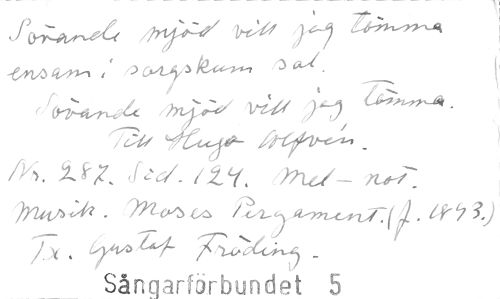 Sövande mjöd vill jag tömma
ensam i sorgskum sal.
Sövande mjöd vill jag tömma.
Till Hugo Alfvén.
Nr. 287. Sid. 124. Mel-not.
Musik. Moses Pergament. (f. 1893.)
Tx. Gustaf Fröding.
Sångarförbundet 5